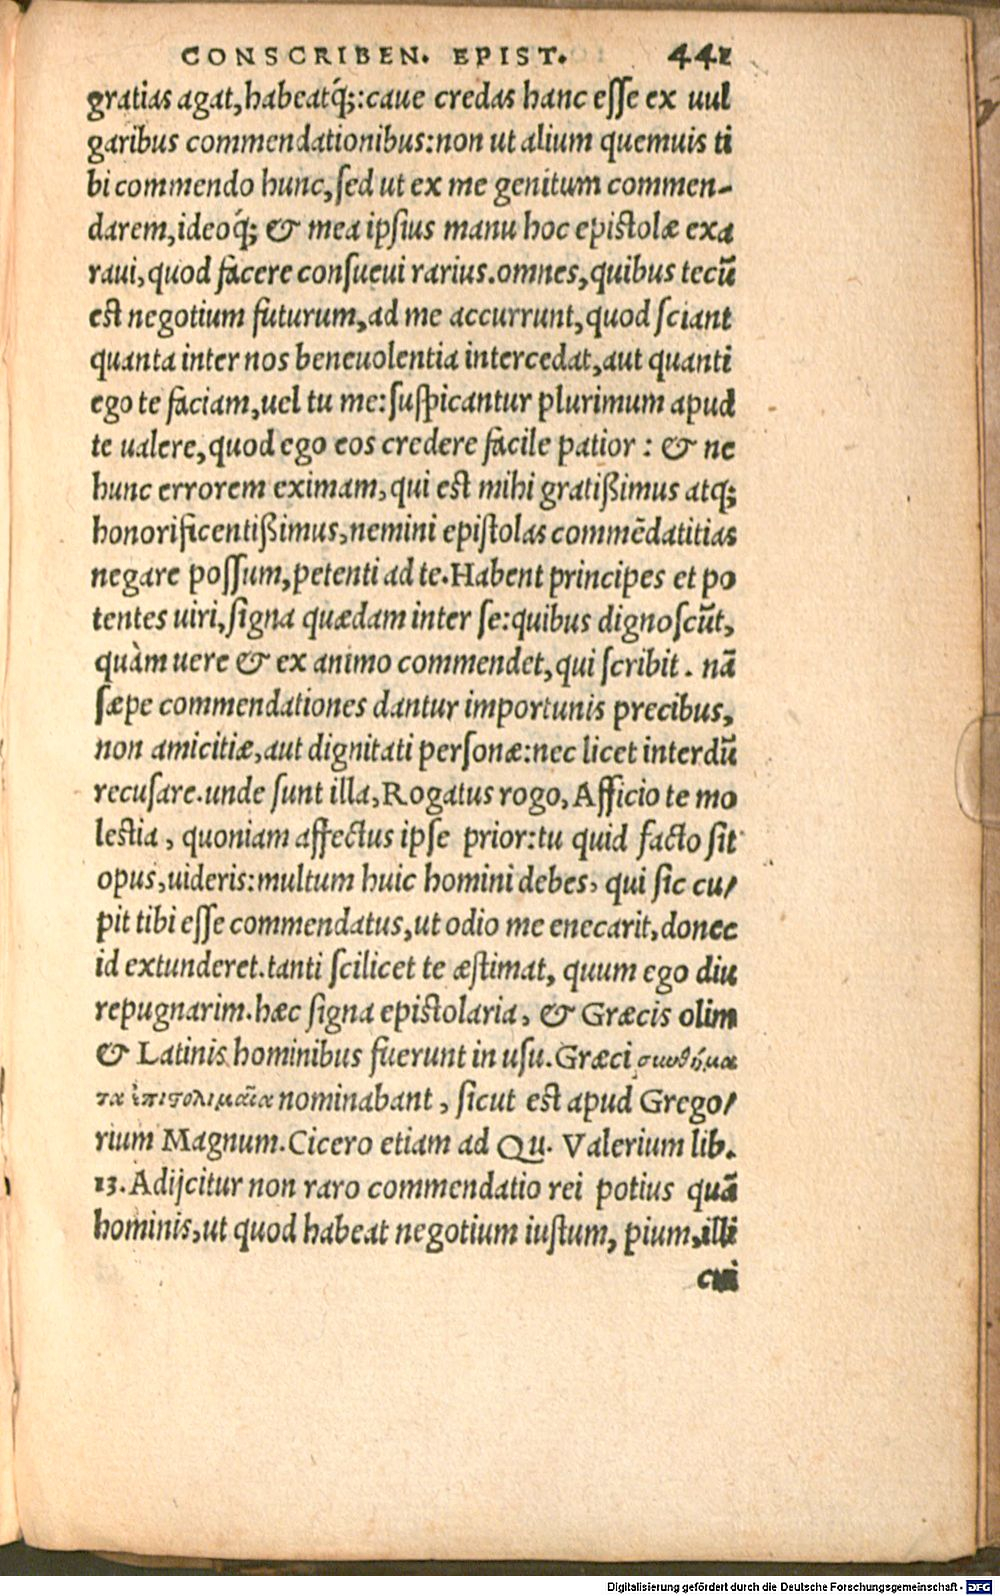 CONSCRIBEN. EPIST. 441
gratias agat, habeatq́;: caue credas hanc esse ex uul
garibus commendationibus: non ut alium quemuis ti
bi commendo hunc, sed ut ex me genitum commen-
darem, ideoq́; & mea ipsius manu hoc epistolæ exa
raui, quod facere consueui rarius. omnes, quibus tecū
est negotium futurum, ad me accurrunt, quod sciant
quanta inter nos beneuolentia intercedat, aut quanti
ego te faciam, uel tu me: suspicantur plurimum apud
te ualere, quod ego eos credere facile patior: & ne
hunc errorem eximam, qui est mihi gratißimus atq;
honorificentißimus, nemini epistolas commēdatitias
negare possum, petenti ad te. Habent principes et po
tentes uiri, signa quædam inter se: quibus dignoscūt,
quàm uere & ex animo commendet, qui scribit. nā
sæpe commendationes dantur importunis precibus,
non amicitiæ, aut dignitati personæ: nec licet interdū
recusare. unde sunt illa, Rogatus rogo, Afficio te mo
lestia, quoniam affectus ipse prior: tu quid facto sit
opus, uideris: multum huic homini debes, qui sic cu/
pit tibi esse commendatus, ut odio me enecarit, donec
id extunderet. tanti scilicet te æstimat, quum ego diu
repugnarim. hæc signa epistolaria, & Græcis olim
& Latinis hominibus fuerunt in usu. Græci συνθήμα
τα ἐπιστολιμαῖα nominabant, sicut est apud Grego/
rium Magnum. Cicero etiam ad Qu. Valerium lib.
13. Adijcitur non raro commendatio rei potius quā
hominis, ut quod habeat negotium iustum, pium, illi
cui
Digitalisierung gefördert durch die Deutsche Forschungsgemeinschaft - DFG